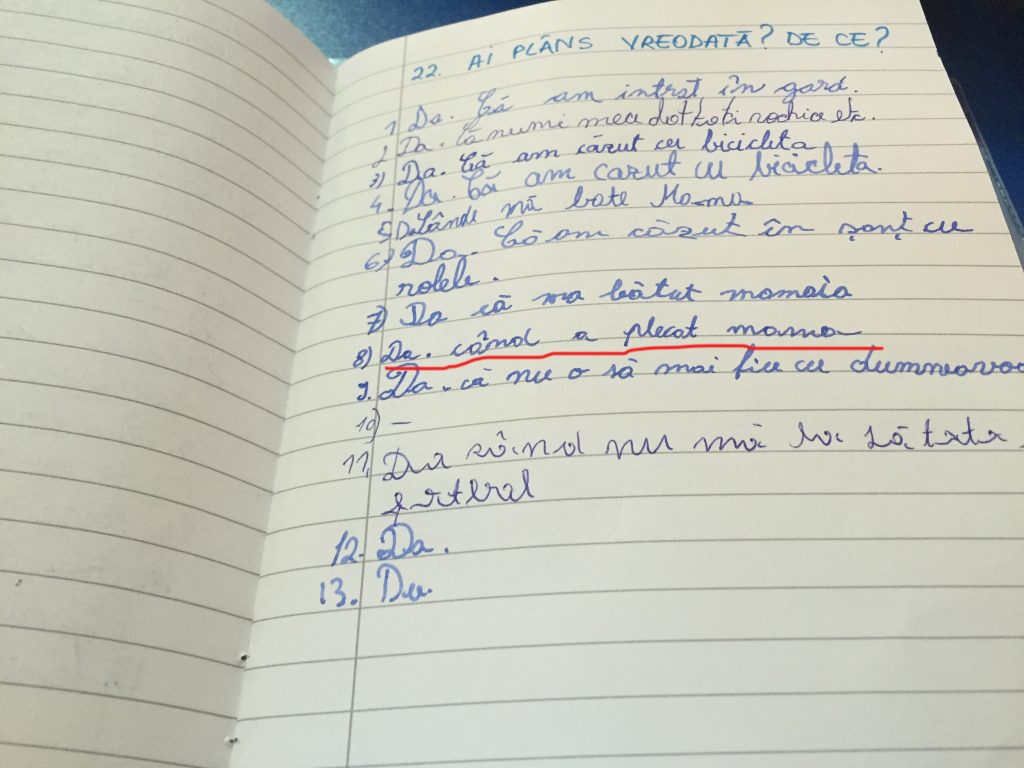 22. AI PLÂNS VREODATĂ? DE CE?
1 Da. Că am intrat în gard.
2 Da. Că numi mea dat rochia etc.
3) Da. Că am căzut cu bicicleta
4. Da. Că am cazut cu bicicleta.
5 Da Cânde mă bate Mama
6) Da. Că am căzut în șanț cu
rolele.
7) Da că ma bătut mamaia
8) Da. când a plecat mama
9. Da. că nu o să mai fiu cu dumneavoa
10) —
11, Da când nu mă la să tata
12. Da.
13. Da.